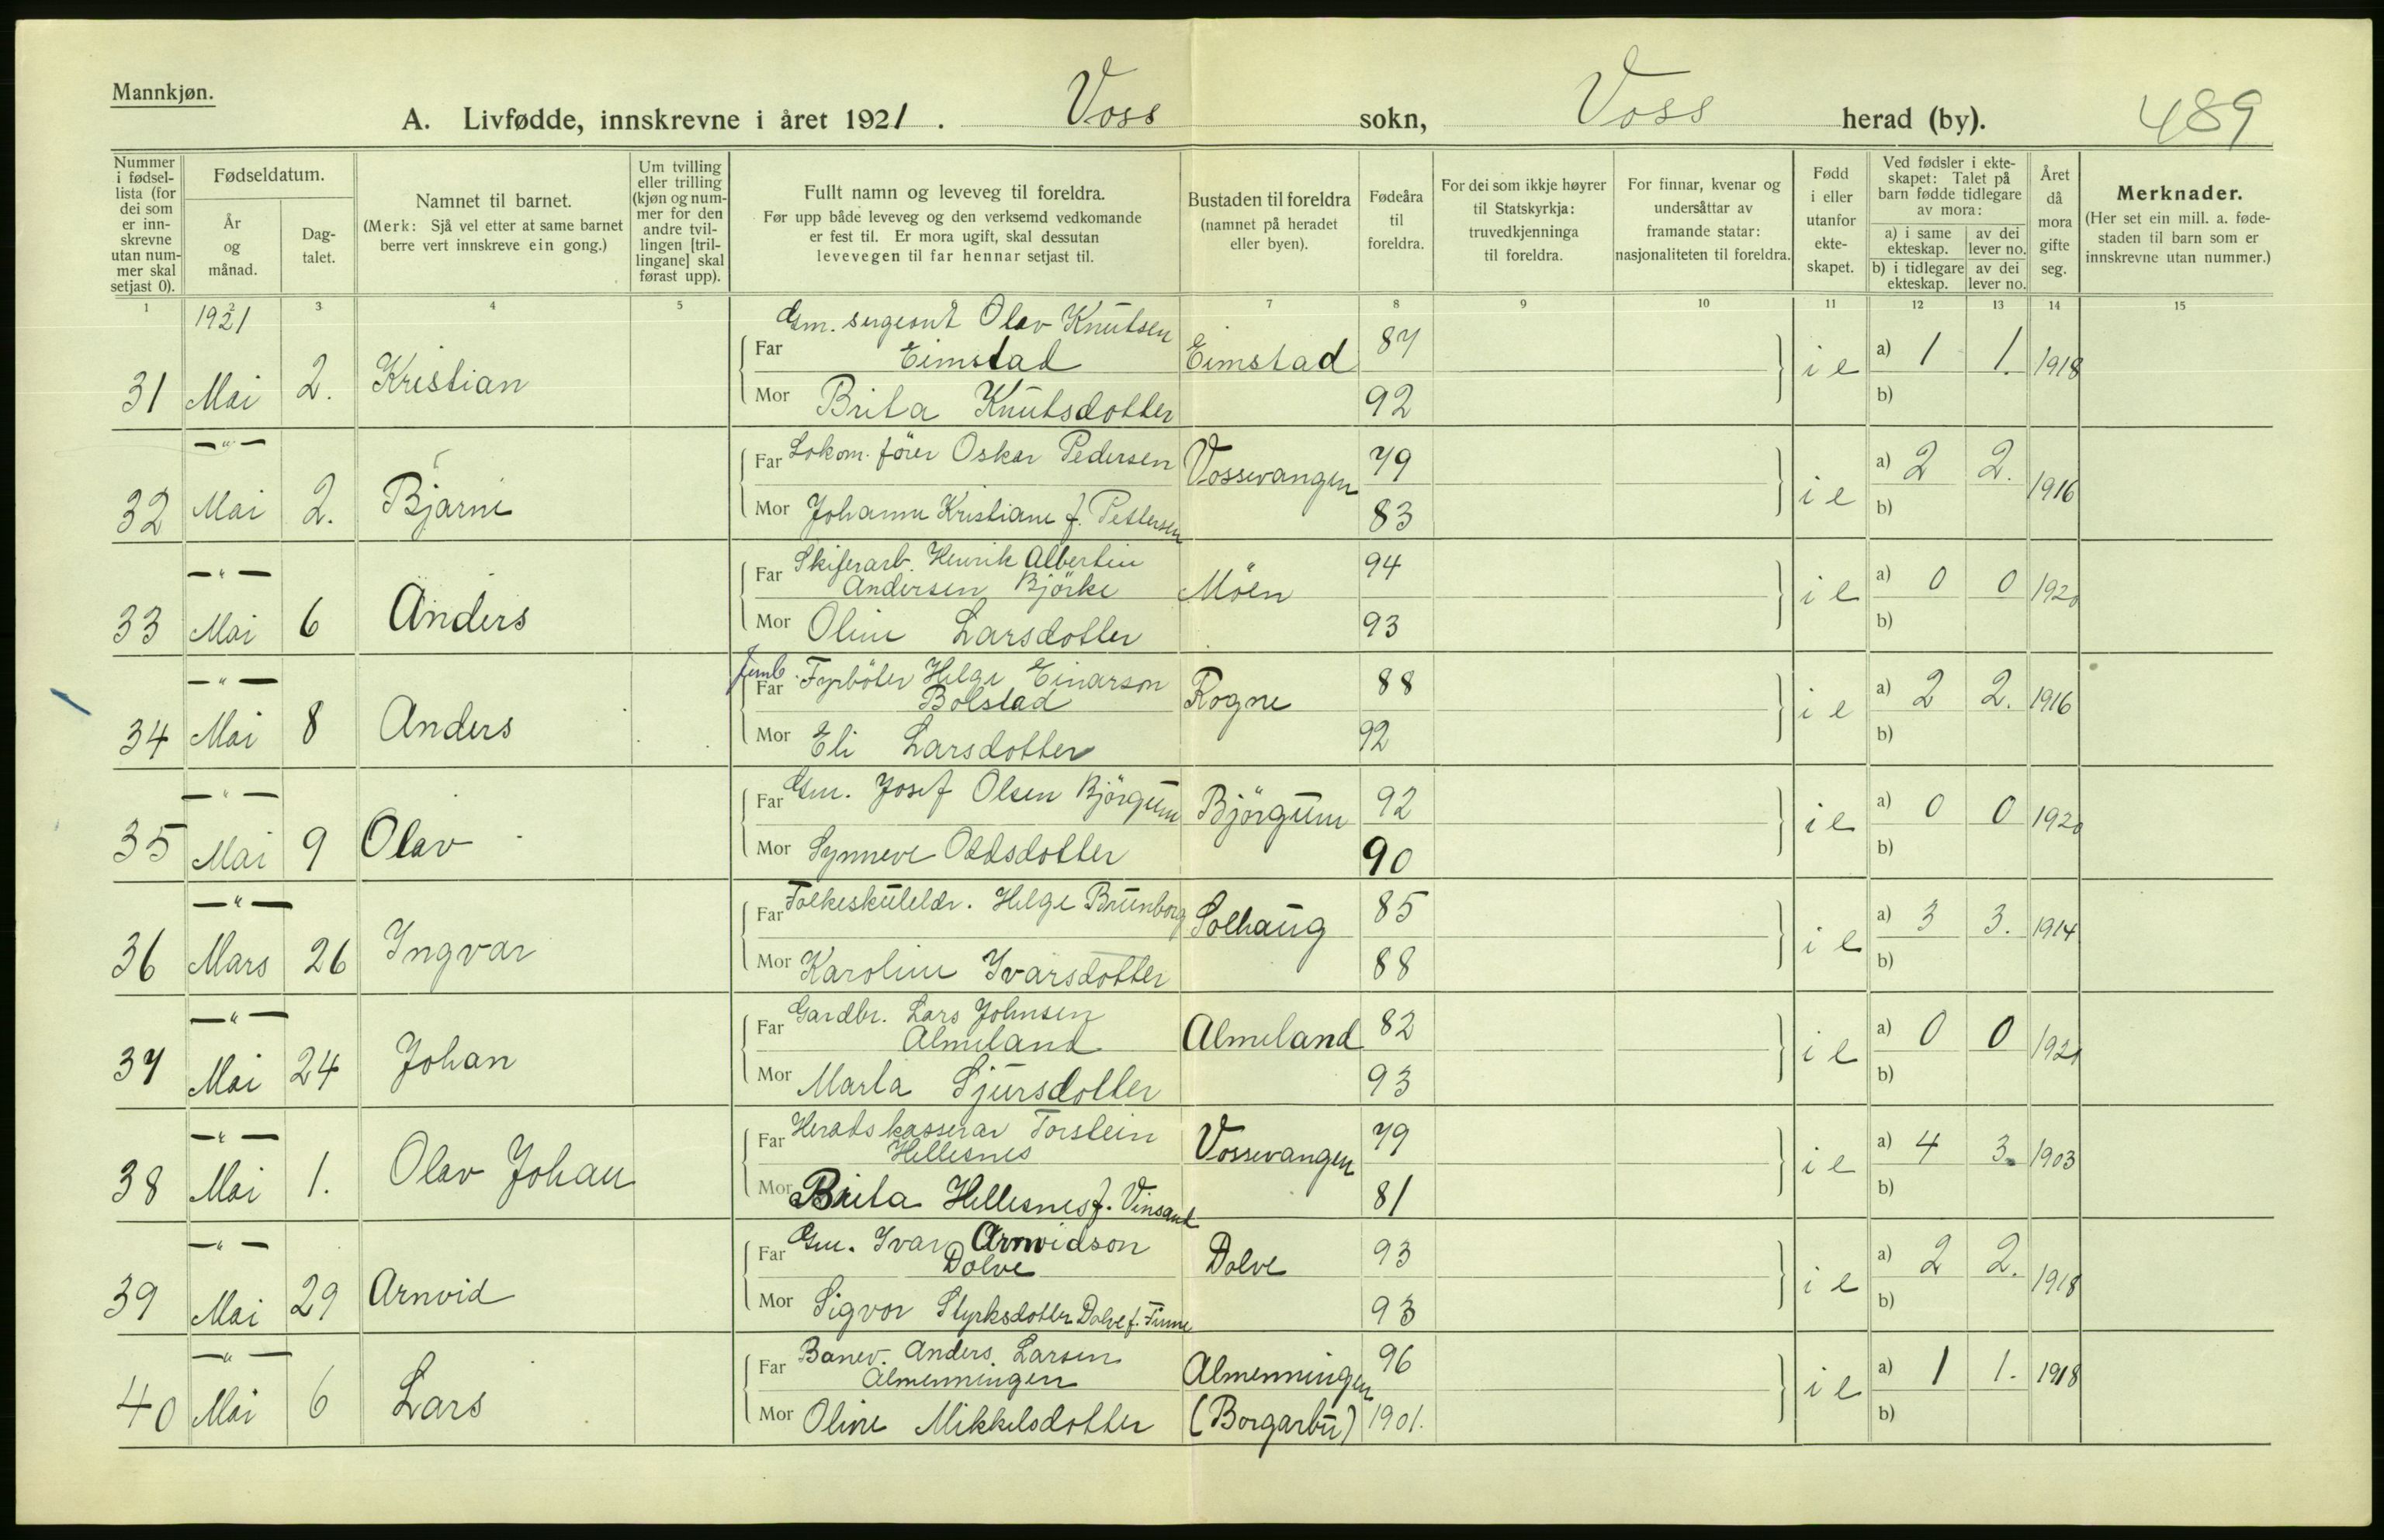 Mannkjøn.
A. Livfødde, innskrevne i året 1921. Voss sokn, Voss herad (by). 489
Nummer i fødsel-lista (for dei som er inn-skrevne utan num-mer skal setjast 0).
Fødseldatum.
År og månad.
Dag-talet.
Namnet til barnet.
(Merk: Sjå vel etter at same barnet berre vert innskreve ein gong.)
Um tvilling eller trilling (kjøn og num-mer for den andre tvil-lingen [tril-lingane] skal førast upp).
Fullt namn og leveveg til foreldra.
Før upp både leveveg og den verksemd vedkomande er fest til. Er mora ugift, skal dessutan levevegen til far hennar setjast til.
Bustaden til foreldra (namnet på heradet eller byen).
Fødeåra til foreldra.
For dei som ikkje høyrer til Statskyrkja: truvedkjenninga til foreldra.
For finnar, kvenar og undersåttar av framande statar: nasjonaliteten til foreldra.
Fødd i eller utanfor ekte-skapet.
Ved fødsler i ekte-skapet: Talet på barn fødde tidlegare av mora:
a) i same ekteskap. av dei lever no.
b) i tidlegare ekteskap. av dei lever no.
Året då mora gifte seg.
Merknader.
(Her set ein mill. a. føde-staden til barn som er innskrevne utan nummer.)
1 2 3 4 5 7 8 9 10 11 12 13 14 15
1921
31 Mai 2. Kristian Far Gm. sergeant Olav Knutsen Eimstad Eimstad 87 i e a) 1 1. 1918
Mor Brita Knutsdotter 92 b)
—"—
32 Mai 2. Bjarne Far Lokom. förer Oskar Pedersen Vossevangen 79 i e a) 2 2. 1916
Mor Johanne Kristiane f. Pettersen 83 b)
—"—
33 Mai 6 Anders Far Skiferarb. Henrik Albertin Andersen Björke Möen 94 i e a) 0 0 1920
Mor Oline Larsdotter 93 b)
—"—
34 Mai 8 Anders Jernb. Far Fyrböter Helge Einarson Bolstad Rogne 88 i e a) 2 2. 1916
Mor Eli Larsdotter 92 b)
—"—
35 Mai 9 Olav Far Gm. Josef Olsen Björgum Björgum 92 i e a) 0 0 1920
Mor Synneve Oddsdotter 90 b)
—"—
36 Mars 26 Ingvar Far Folkeskulelær. Helge Brunborg Solhaug 85 i e a) 3 3. 1914
Mor Karoline Ivarsdotter 88 b)
—"—
37 Mai 24 Johan Far Gardbr. Lars Johnsen Almeland Almeland 82 i e a) 0 0 192
Mor Marta Sjursdotter 93 b)
—"—
38 Mai 1. Olav Johan Far Heradskasserar Torstein Hellesnes Vossevangen 79 i e a) 4 3. 1903
Mor Brita Hellesnes f. Vinsand 81 b)
—"—
39 Mai 29 Arnvid Far Gm. Ivar Arnvidson Dolve Dolve 93 i e a) 2 2. 1918
Mor Sigvor Styrksdotter Dolve f. Finne 93 b)
—"—
40 Mai 6 Lars Far Banev. Anders Larsen Almenningen Almenningen 96 i e a) 1 1. 1918
Mor Oline Mikkelsdotter (Borgarbu) 1901. b)